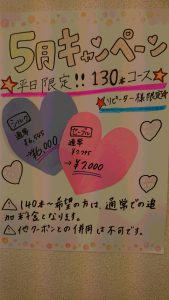 5月キャンペーン
平日限定!! 130分コース
リピーター様限定
シングル
通常
¥6,545
→¥6,000
通常
¥7,795
→¥7,000
⚠140分~希望の方は、通常での追
加料金となります。
⚠他クーポンとの併用は不可です。